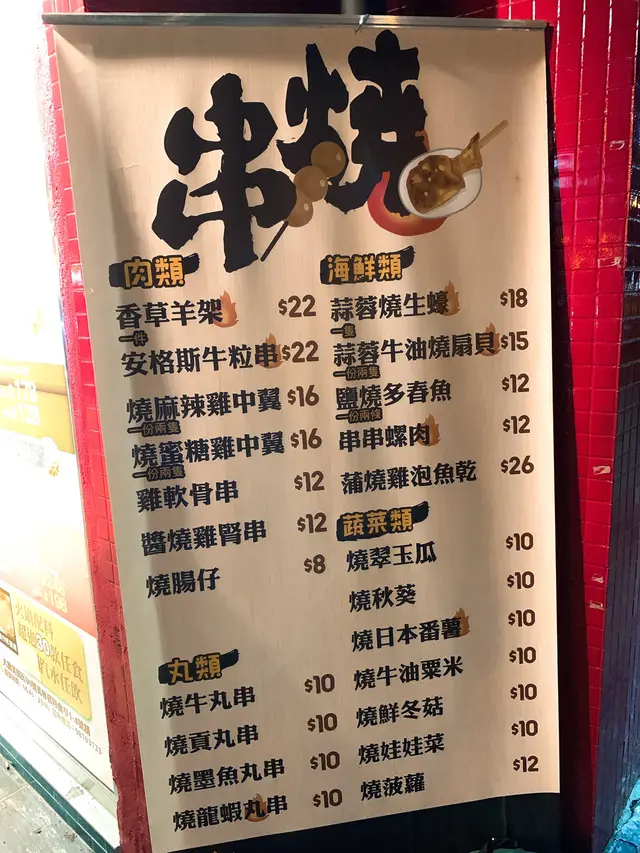 串燒
肉類
香草羊架 $22
一件
安格斯牛粒串 $22
燒麻辣雞中翼 $16
一份兩隻
燒蜜糖雞中翼 $16
一份兩隻
雞軟骨串 $12
醬燒雞腎串 $12
燒腸仔 $8
丸類
燒牛丸串 $10
燒貢丸串 $10
燒墨魚丸串 $10
燒龍蝦丸串 $10
海鮮類
蒜蓉燒生蠔 $18
一隻
蒜蓉牛油燒扇貝 $15
一份兩隻
鹽燒多春魚 $12
一份兩條
串串螺肉 $12
蒲燒雞泡魚乾 $26
蔬菜類
燒翠玉瓜 $10
燒秋葵 $10
燒日本番薯 $10
燒牛油粟米 $10
燒鮮冬菇 $10
燒娃娃菜 $10
燒菠蘿 $12
火鍋配料